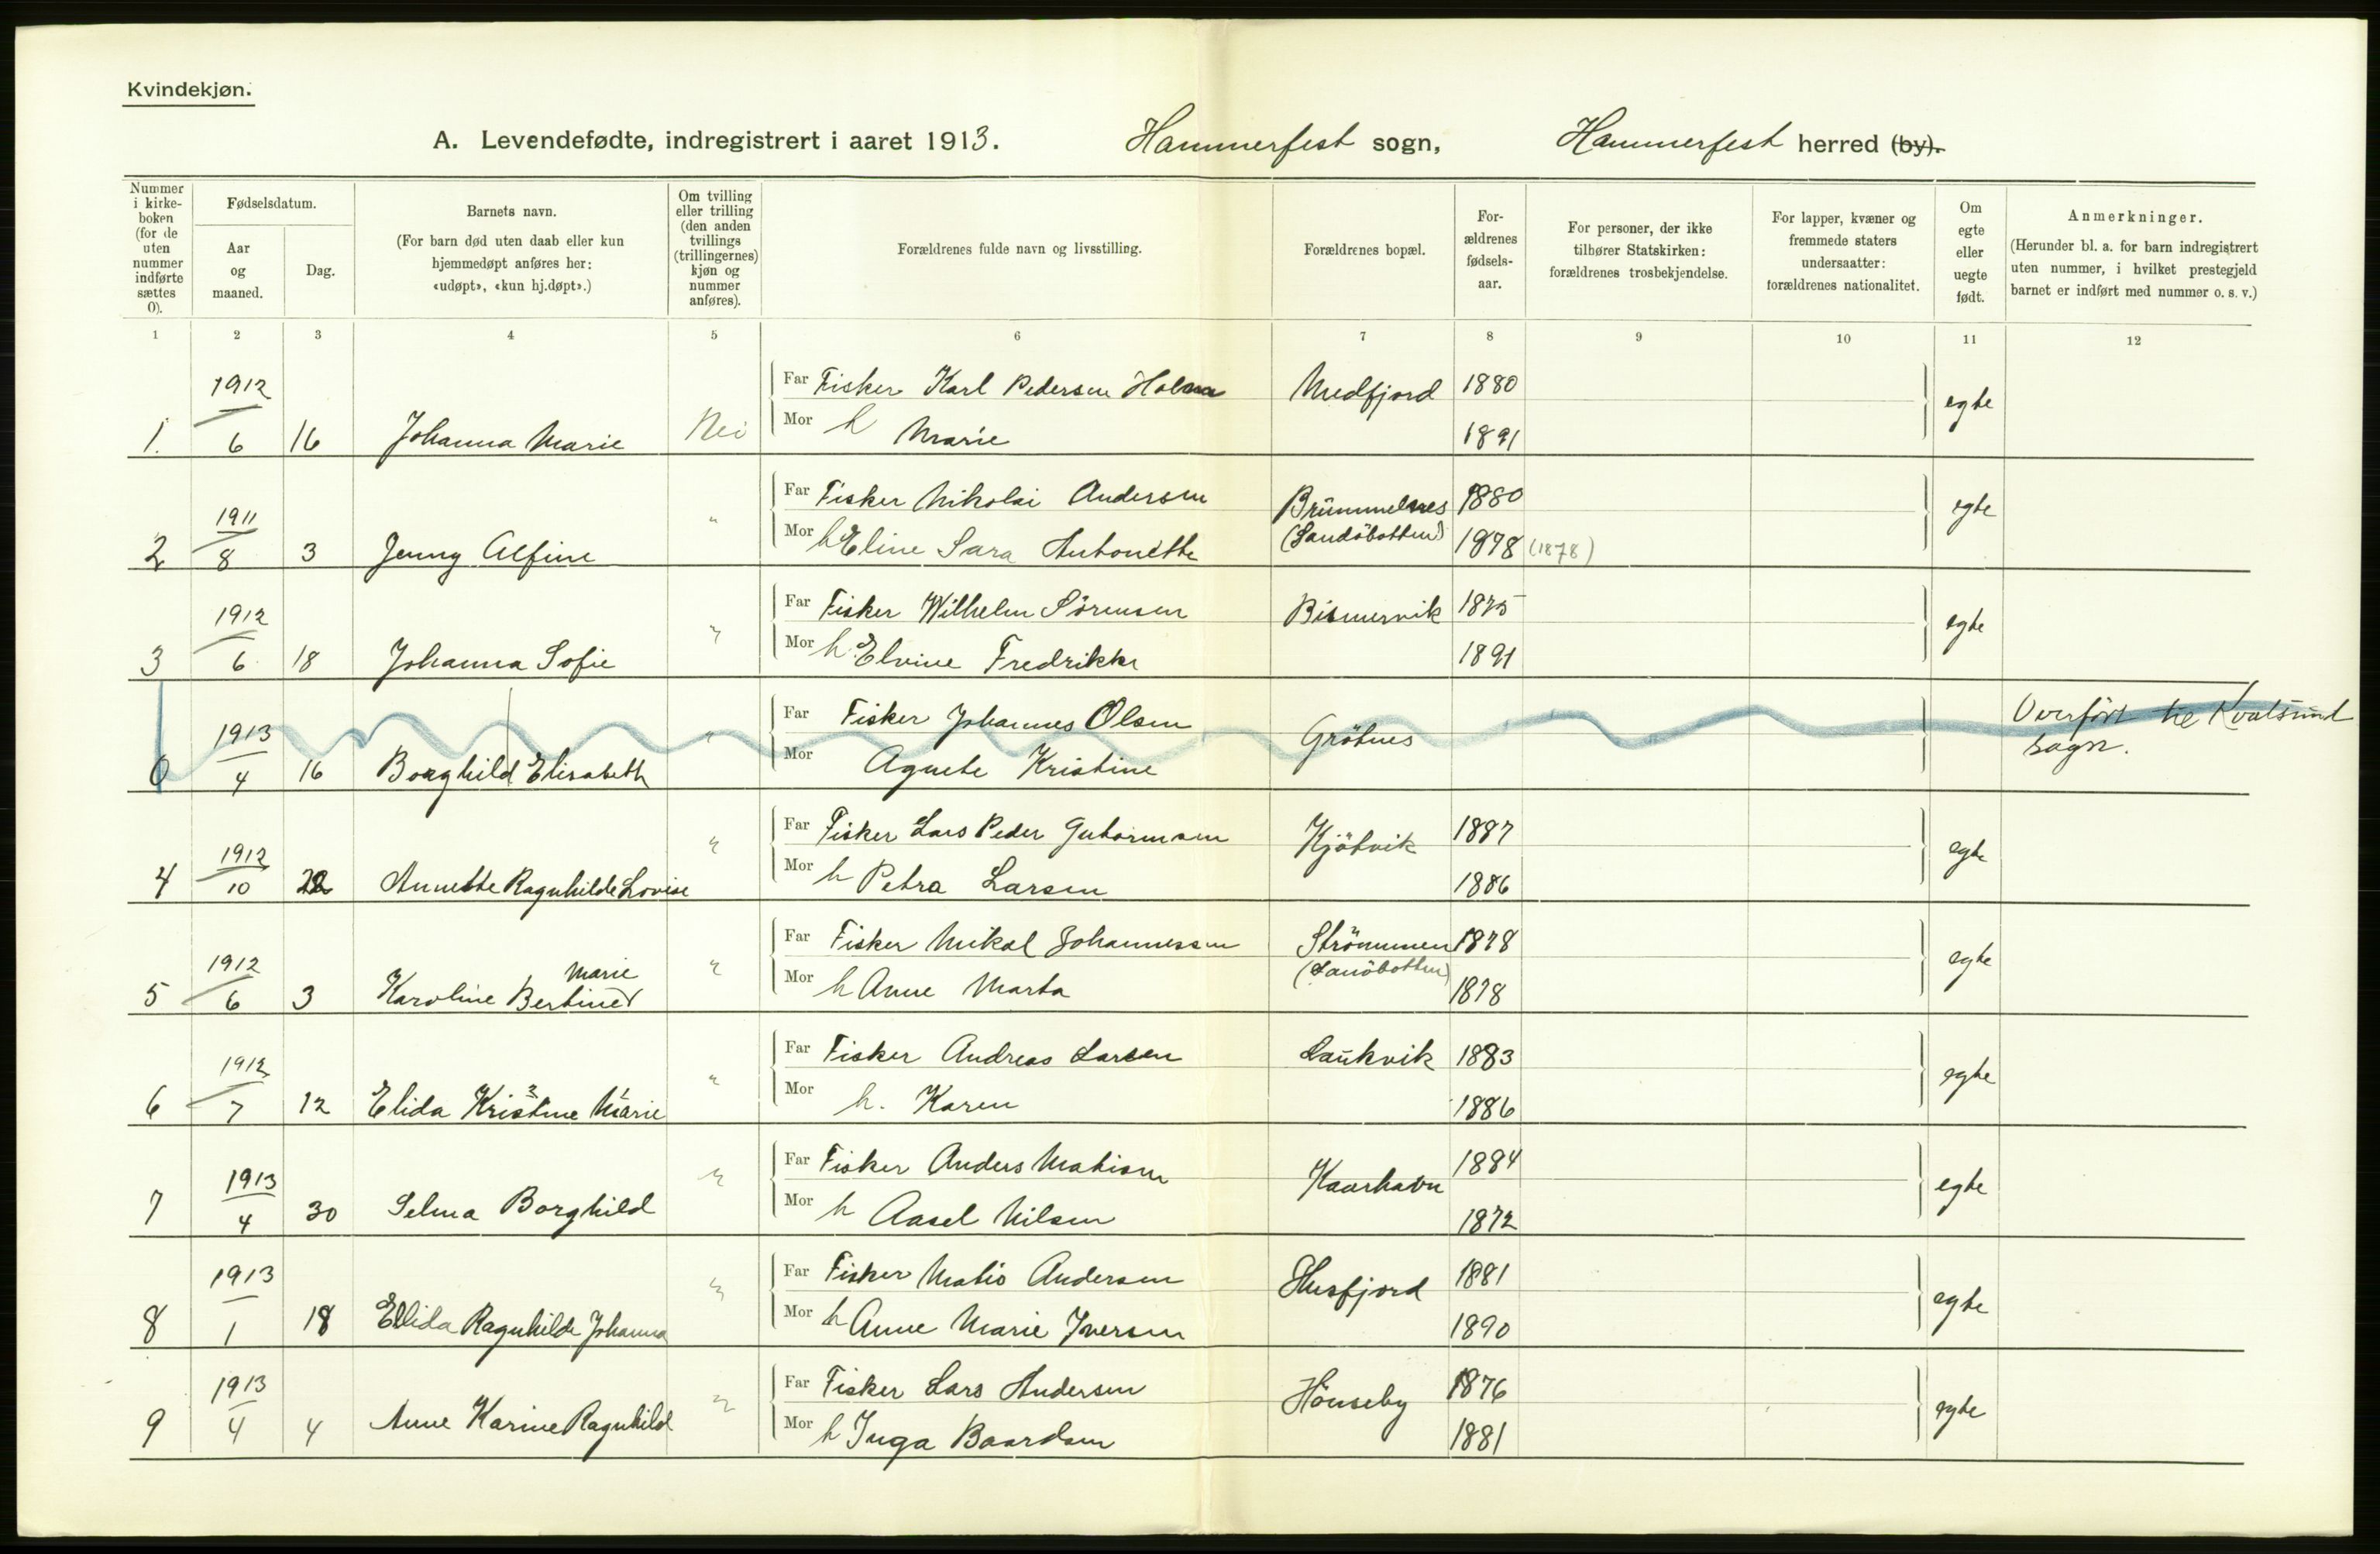 Kvindekjøn.
A. Levendefødte, indregistrert i aaret 1913. Hammerfest sogn, Hammerfest herred (by).
Nummer i kirke- boken (for de uten nummer indførte sættes 0).
Fødselsdatum.
Aar og maaned.
Dag.
Barnets navn.
(For barn død uten daab eller kun hjemmedøpt anføres her: «udøpt», «kun hj.døpt».)
Om tvilling eller trilling (den anden tvillings (trillingernes) kjøn og nummer anføres).
Forældrenes fulde navn og livsstilling.
Forældrenes bopæl.
For- ældrenes fødsels- aar.
For personer, der ikke tilhører Statskirken: forældrenes trosbekjendelse.
For lapper, kvæner og fremmede staters undersaatter: forældrenes nationalitet.
Om egte eller uegte født.
Anmerkninger.
(Herunder bl. a. for barn indregistrert uten nummer, i hvilket prestegjeld barnet er indført med nummer o. s. v.)
1 2 3 4 5 6 7 8 9 10 11 12
1912 Far Fisker Karl Pedersen Medfjord 1880 egte
1. 6 16 Johanna Marie Nei Mor h Marie 1891
1911 " Far Fisker Nikolai Andersen Brümmelnes 1880 egte
2 8 3 Jenny Alfine Mor h Eline Sara Antonette (Sandöbotten) 1878 (1878)
1912 " Far Fisker Wilhelm Sörensen Bismervik 1875 egte
3 6 18 Johanna Sofie Mor h. Elvine Fredrikke 1891
1913 " Far Fisker Johannes Olsen Grötnes Overført til Kvalsund
0 4 16 Borghild Elisabeth Mor Agnete Kristine sogn.
1912 " Far Fisker Lars Peder Gutormsen Kjötvik 1887 egte
4 10 22 Annette Ragnhilde Lovise Mor h Petra Larsen 1886
1912 Marie " Far Fisker Mikal Johannessen Strömmen 1878 egte
5 6 3 Karoline Bertine Mor h Anne Marta 1878
1912 " Far Fisker Andreas Larsen Laukvik 1883 egte
6 7 12 Elida Kristine Marie Mor h. Karen 1886
1913 " Far Fisker Anders Mathisen Kaarhavn 1884 egte
7 4 30 Selma Borghild Mor h Aasel Nilsen 1872
1913 " Far Fisker Matis Andersen Husfjord 1881 egte
8 1 18 Ellida Ragnhilde Johanna Mor h Anne Marie Iversen 1890
1913 " Far Fisker Lars Andersen Hönseby 1876 egte
9 4 4 Anne Karine Ragnhild Mor h Inga Baardsen 1881